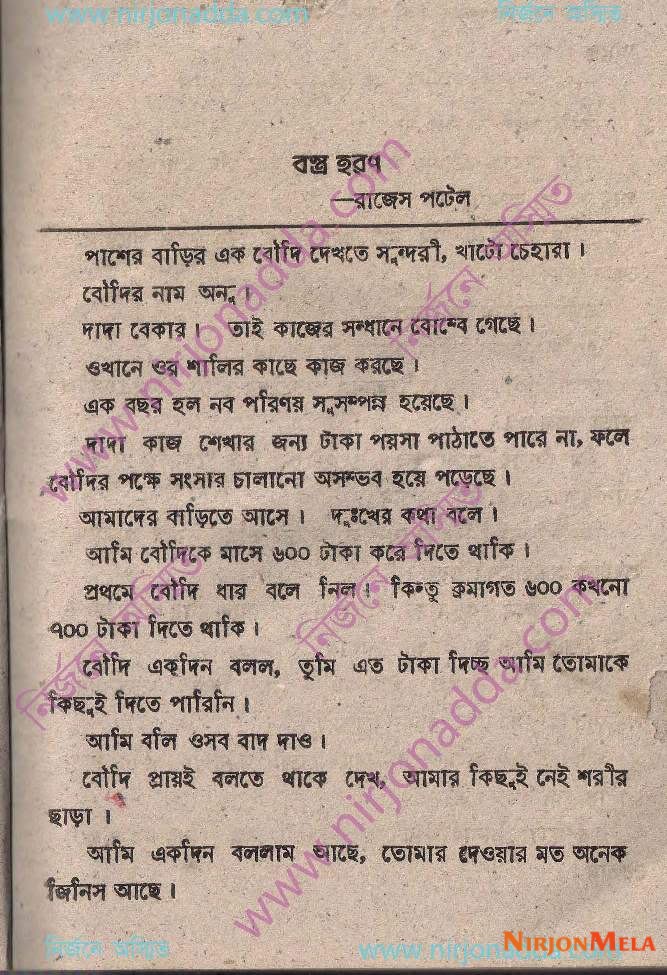 www.nirjonadda.com নির্জনে অস্মিত
বস্ত্র হরণ
—রাজেস পটেল
পাশের বাড়ির এক বৌদি দেখতে সুন্দরী, খাটো চেহারা ।
বৌদির নাম অনু ।
দাদা বেকার । তাই কাজের সন্ধানে বোম্বে গেছে ।
ওখানে ওর শালির কাছে কাজ করছে ।
এক বছর হল নব পরিণয় সুসম্পন্ন হয়েছে ।
দাদা কাজ শেখার জন্য টাকা পয়সা পাঠাতে পারে না, ফলে
বৌদির পক্ষে সংসার চালানো অসম্ভব হয়ে পড়েছে ।
আমাদের বাড়িতে আসে । দুঃখের কথা বলে ।
আমি বৌদিকে মাসে ৬০০ টাকা করে দিতে থাকি ।
প্রথমে বৌদি ধার বলে নিল । কিন্তু ক্রমাগত ৬০০ কখনো
৭০০ টাকা দিতে থাকি ।
বৌদি একদিন বলল, তুমি এত টাকা দিচ্ছ আমি তোমাকে
কিছুই দিতে পারিনি ।
আমি বলি ওসব বাদ দাও ।
বৌদি প্রায়ই বলতে থাকে দেখ, আমার কিছুই নেই শরীর
ছাড়া ।
আমি একদিন বললাম আছে, তোমার দেওয়ার মত অনেক
জিনিস আছে ।
www.nirjonadda.com
www.nirjonadda.com
নির্জনে অস্মিত www.nirjonadda.com
NIRJONMELA